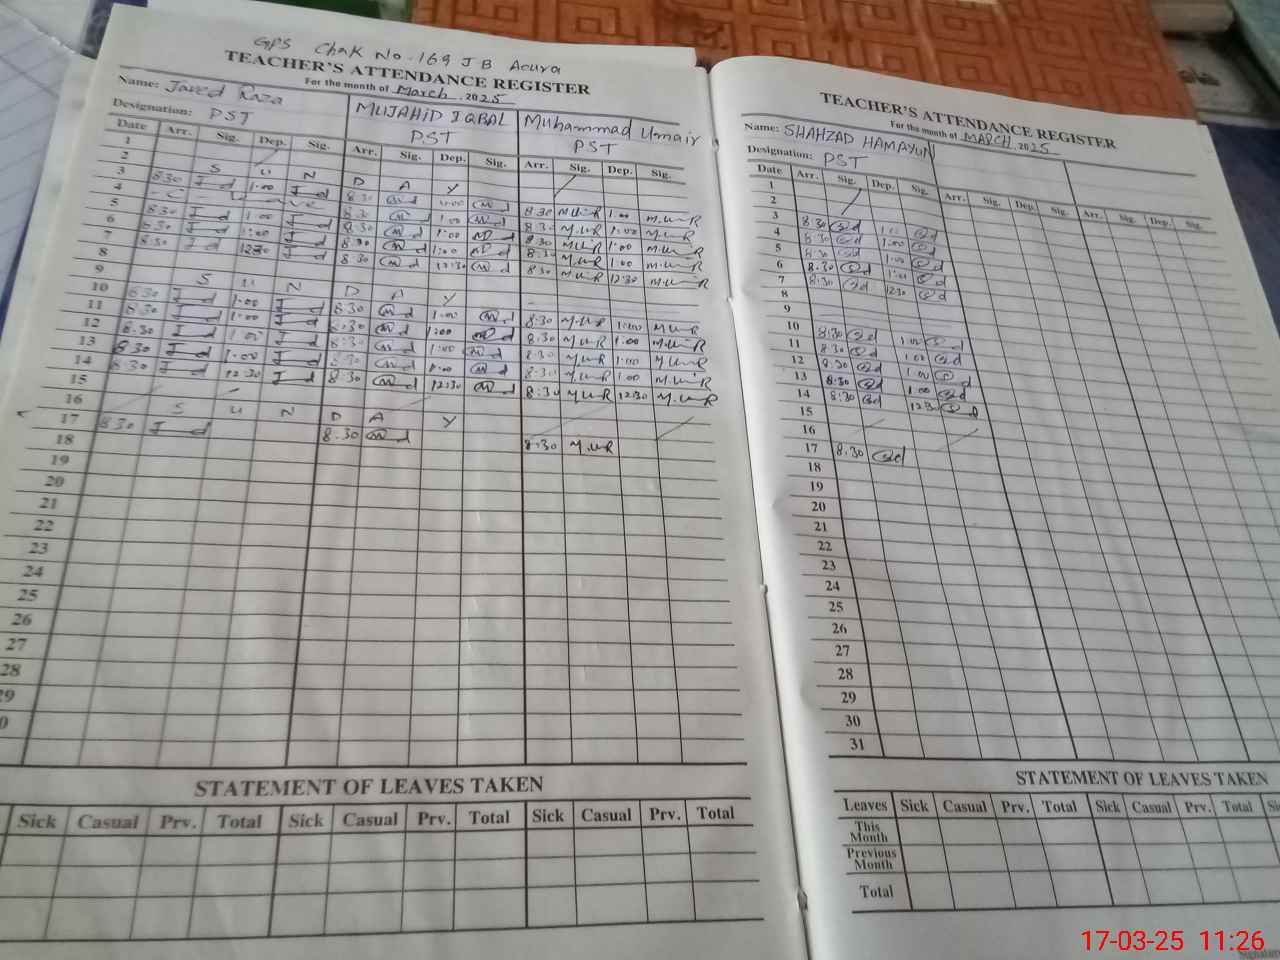 GPS Chak No. 169 J B Acura
TEACHER'S ATTENDANCE REGISTER
For the month of March 2025
Name: Javed Raza MUJAHID IQBAL Muhammad Umair
Designation: PST PST PST
Date Arr. Sig. Dep. Sig. Arr. Sig. Dep. Sig. Arr. Sig. Dep. Sig.
1
2 S U N D A Y
3 8:30 1:00 8:30 1:00 8:30 M.UmR 1:00 M.UmR
4 C- Leave 8:30 1:00 8:30 M.UmR 1:00 M.UmR
5 8:30 1:00 8:30 1:00 8:30 M.UmR 1:00 M.UmR
6 8:30 1:00 8:30 1:00 8:30 M.UmR 1:00 M.UmR
7 8:30 12:30 8:30 12:30 8:30 M.UmR 12:30 M.UmR
8
9 S U N D A Y
10 8:30 1:00 8:30 1:00 8:30 M.UmR 1:00 M.UmR
11 8:30 1:00 8:30 1:00 8:30 M.UmR 1:00 M.UmR
12 8:30 1:00 8:30 1:00 8:30 M.UmR 1:00 M.UmR
13 8:30 1:00 8:30 1:00 8:30 M.UmR 1:00 M.UmR
14 8:30 12:30 8:30 12:30 8:30 M.UmR 12:30 M.UmR
15
16 S U N D A Y
17 8:30 8:30 8:30 M.UmR
18
19
20
21
22
23
24
25
26
27
28
29
STATEMENT OF LEAVES TAKEN
Sick Casual Prv. Total Sick Casual Prv. Total Sick Casual Prv. Total
TEACHER'S ATTENDANCE REGISTER
For the month of MARCH 2025
Name: SHAHZAD HAMAYUN
Designation: PST
Date Arr. Sig. Dep. Sig. Arr. Sig. Dep. Sig. Arr. Sig. Dep. Sig.
1
2
3 8:30 1:00
4 8:30 1:00
5 8:30 1:00
6 8:30 1:00
7 8:30 12:30
8
9
10 8:30 1:00
11 8:30 1:00
12 8:30 1:00
13 8:30 1:00
14 8:30 12:30
15
16
17 8:30
18
19
20
21
22
23
24
25
26
27
28
29
30
31
STATEMENT OF LEAVES TAKEN
Leaves Sick Casual Prv. Total Sick Casual Prv. Total
This Month
Previous Month
Total
17-03-25 11:26